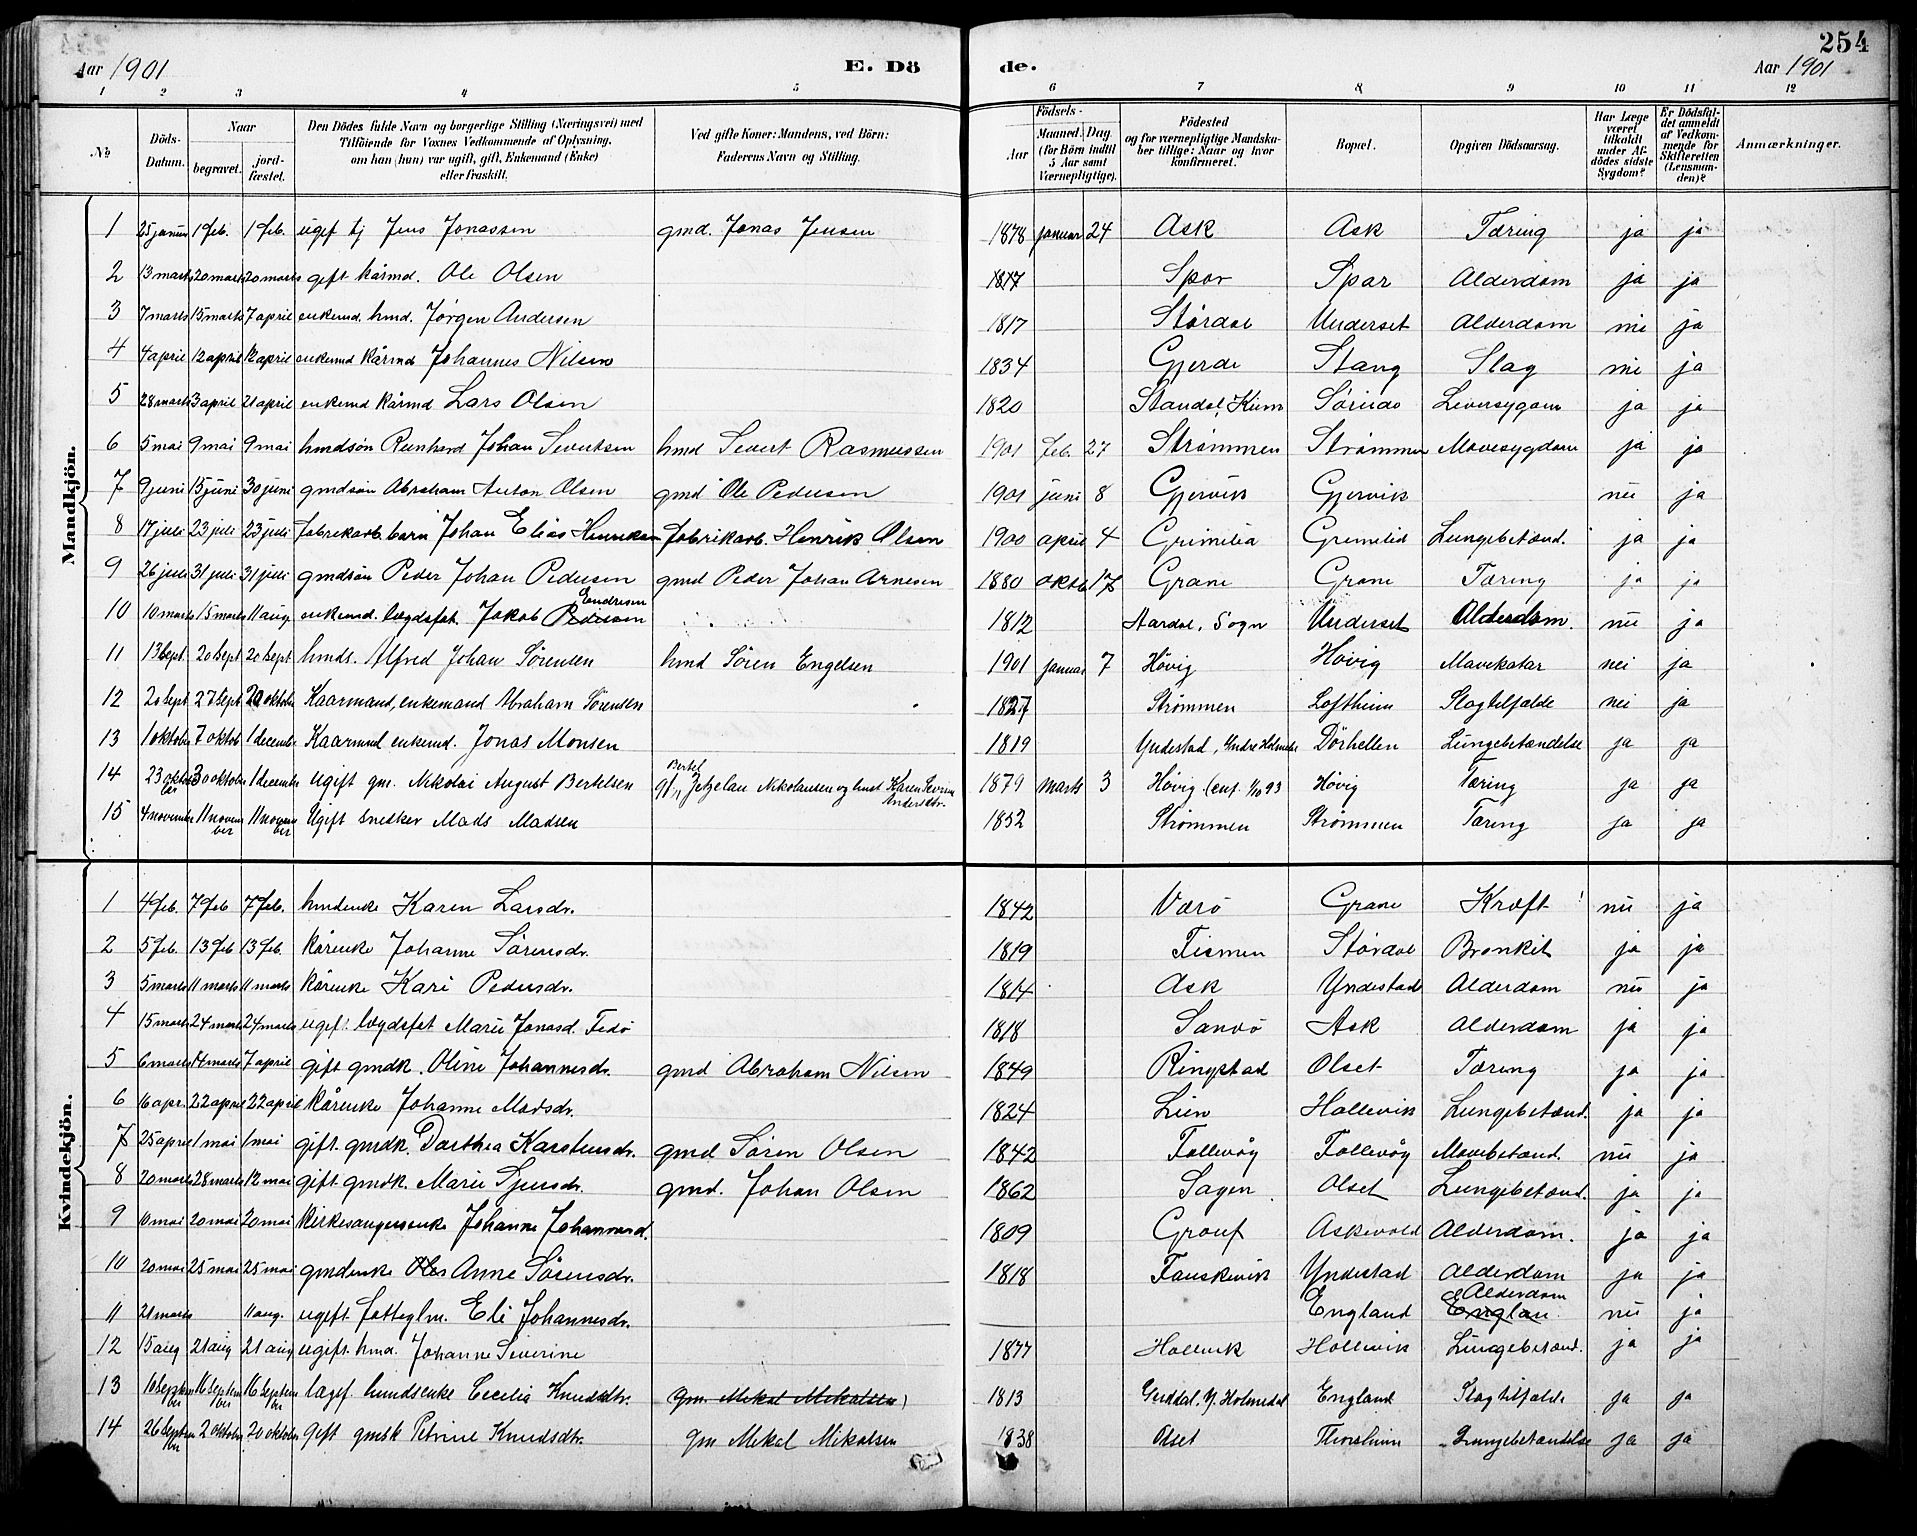 254
Aar 1901 E. Dö de. Aar 1901
1 2 3 4 5 6 7 8 9 10 11 12
No Döds-Datum. Naar begravet. jord-fæstet. Den Dödes fulde Navn og borgerlige Stilling (Næringsvei) med Tilföiende for Voxnes Vedkommende af Oplysning, om han (hun) var ugift, gift, Enkemand (Enke) eller fraskilt. Ved gifte Koner: Mandens, ved Börn: Faderens Navn og Stilling. Födsels- Aar Maaned. Dag (for Börn indtil 5 Aar samt Værnepligtige). Födested og for værnepligtige Mandskaber tillige: Naar og hvor konfirmeret. Bopæl. Opgiven Dödsaarsag. Har Læge været tilkaldt under Afdödes sidste Sygdom? Er Dödsfaldet anmeldt af Vedkommende for Skifteretten (Lensmanden)? Anmærkninger.
Mandkjön.
1 25 januar 1 feb. 1 feb. ugift tj Jens Jonassen gmd. Jonas Jensen 1878 januar 24 Ask Ask Tæring ja ja
2 13 marts 20 marts 20 marts gift kårmd. Ole Olsen 1817 Spar Spar Alderdom ja ja
3 7 marts 15 marts 7 april enkemd. hmd. Jörgen Andersen 1817 Stårdal Underset Alderdom nei ja
4 4 april 12 april 12 april enkemd kårmd Johannes Nilsen 1834 Gjerde Stang Slag nei ja
5 28 marts 3 april 21 april enkemd kårmd Lars Olsen 1820 Standal, Kinn Leversygdom ja ja
6 5 mai 9 mai 9 mai hmdsön Reinhard Johan Severtsen hmd Severt Rasmussen 1901 feb. 27 Strømmen Strømmen Mavesygdom ja ja
7 9 juni 15 juni 30 juni gmdsön Abraham Anton Olsen gmd Ole Pedersen 1901 juni 8 Gjervik Gjervik nei ja
8 17 juli 23 juli 23 juli fabrikarb. barn Johan Elias Henriksen fabrikarb. Henrik Olsen 1900 april 4 Grimelid Grimelid Lungebetænd. ja ja
9 26 juli 31 juli 31 juli gmdsön Peder Johan Pedersen gmd Peder Johan Arnesen 1880 oktb. 17 Grane Grane Tæring ja ja
10 10 marts 15 marts 11 aug enkemd. lægdsfat. Jakob Pedersen Endresen 1812 Aardal, Sogn Underset Alderdom. nei ja
11 13 Sept. 20 Sept 20 Sept hmds. Alfred Johan Sörensen hmd Sören Engelsen 1901 januar 7 Hövig Hövig Mavekatar nei ja
12 20 Sept 27 Sept 20 oktober Kaarmand, enkemand Abraham Sörensen 1827 Strømmen Loftheim Slagtilfælde nei ja
13 1 oktober 7 oktob 1 december Kaarmand enkemd. Jonas Monsen 1819 Yndestad, Yndre Holmedal Dörhellen Lungebetændelse ja ja
14 23 oktober 30 oktober 1 december Ugift gm. Nikolai August Bertelsen Bertel Jetzelau Nikolausen og hust. Karen Severine Andersdtr. 1879 marts 3 Hövig (conf. 1/10 93 Hövig Tæring ja ja
15 4 november 11 november 11 november Ugift snedker Mads Madsen 1852 Strømmen Strømmen Tæring ja ja
Kvindekjön.
1 4 feb. 7 feb 7 feb. hmdenke Karen Larsdr. 1842 Værö Grane Kræft nei ja
2 5 feb. 13 feb 13 feb. kårenke Johanne Sörensdr. 1819 Tismen Stårdal Bronkit ja ja
3 5 marts 11 marts 11 marts kårenke Kari Pedersdr. 1814 Ask Yndestad Alderdom nei ja
4 15 marts 24 marts 24 marts ugif. lægdsfat Marie Jonasd. Fedö 1818 Sandö Ask Alderdom ja ja
5 6 marts 14 marts 7 april gift gmdk. Oline Johannesdr. gmd Abraham Nilsen 1849 Ringstad Olset Tæring ja ja
6 16 apr. 22 april 22 april kårenke Johanne Madsdr. 1824 Lien Hallevik Lungebetænd. ja ja
7 25 april 1 mai 1 mai gift. gmdk. Dorthea Karstensdr. gmd Sören Olsen 1842 Follevåg Follevåg Mavebetænd. nei ja
8 20 marts 28 marts 12 mai gift gmdk. Marie Sjursdr. gmd. Johan Olsen 1862 Sagen Olset Lungebetænd. ja ja
9 10 mai 20 mai 20 mai Kirkesangerenke Johanne Johannesd. 1809 Askevold Alderdom. ja ja
10 20 mai 25 mai 25 mai gmdenke Anne Sörensdr. 1818 Fauskevik Yndestad Alderdom ja ja
11 21 marts 11 aug. ugift. fatteglm. Eli Johannesdr. England Englan Alderdom nei ja
12 15 aug 21 aug 21 aug ugift. hmd. Johanne Severine 1877 Hallevik Hallevik Lungebetænd. ja ja
13 10 September 16 September 16 September lægf. hmdsenke Cecilia Knudsdtr. Gm. Mekal Mikalsen 1813 Guddal. Y. Holmedal England Slagtilfælde ja ja
14 26 September 2 oktober 20 oktober Gift gmdk Petrine Knudsdtr. Gm Mekal Mikalsen 1838 Olset Thorsheim Lungebetændelse ja ja